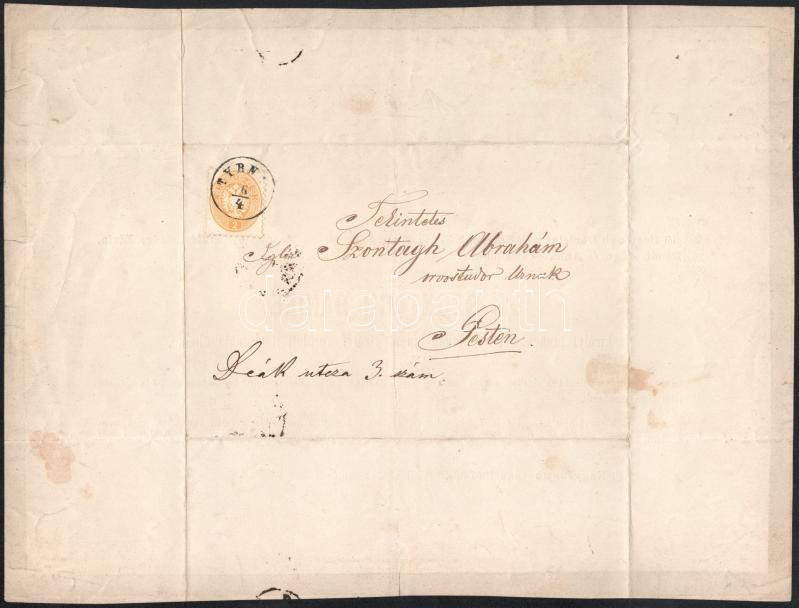 TYRN
6/4
Tekintetes
Szontagh Abrahám
orvostudor Urnak
Pesten.
Deák utcza 3. szám.
darabanth